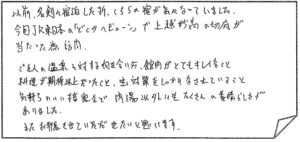 以前、名剣に宿泊した所、こちらの宿が気になっていました。
今回JR東日本の「どこかにビューーン」で上越妙高の切符が
当たった為訪問。
ご主人の温泉に対する向き合い方、館内がとてもキレイなこと
料理が期待以上だったこと、虫対策をしっかりされていること
気持ちのいい接客など肉湯以外にもたくさんの素晴らしさが
ありました。
またお邪魔させていただきたいと思います。